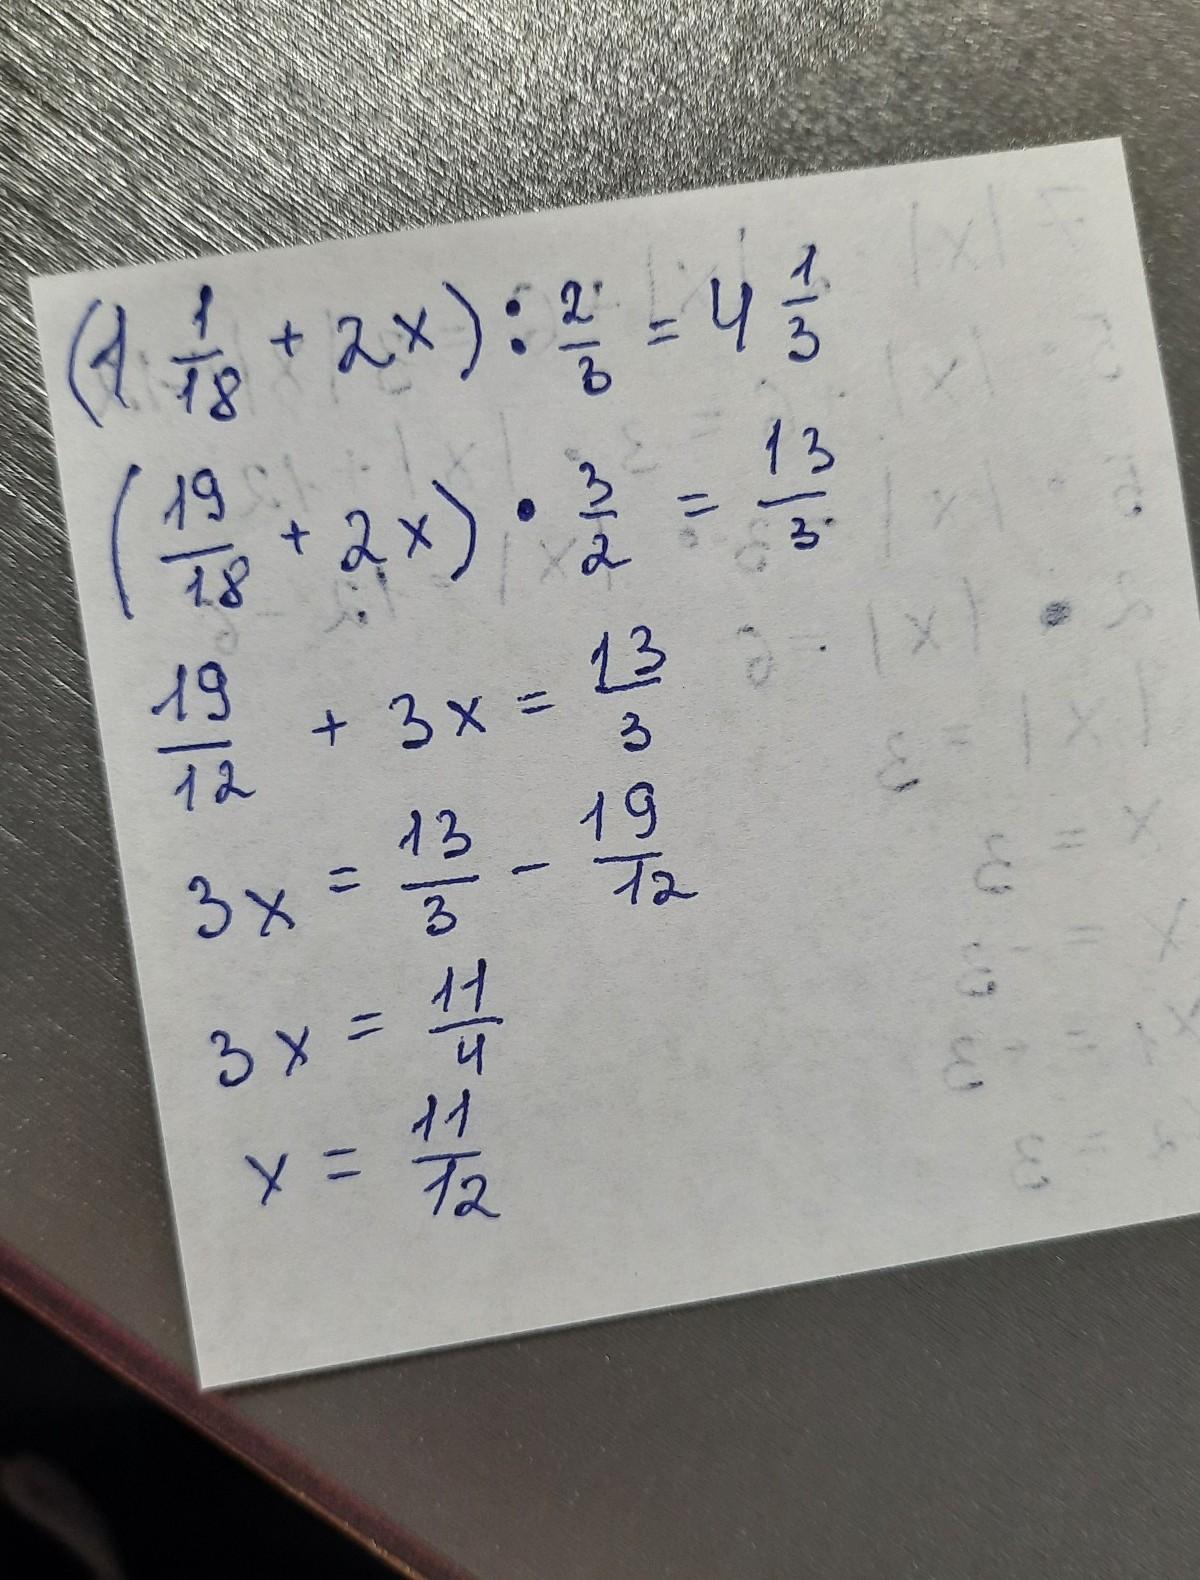 (1 1/18 + 2x) : 2/3 = 4 1/3
(19/18 + 2x) • 3/2 = 13/3
19/12 + 3x = 13/3
3x = 13/3 - 19/12
3x = 11/4
x = 11/12